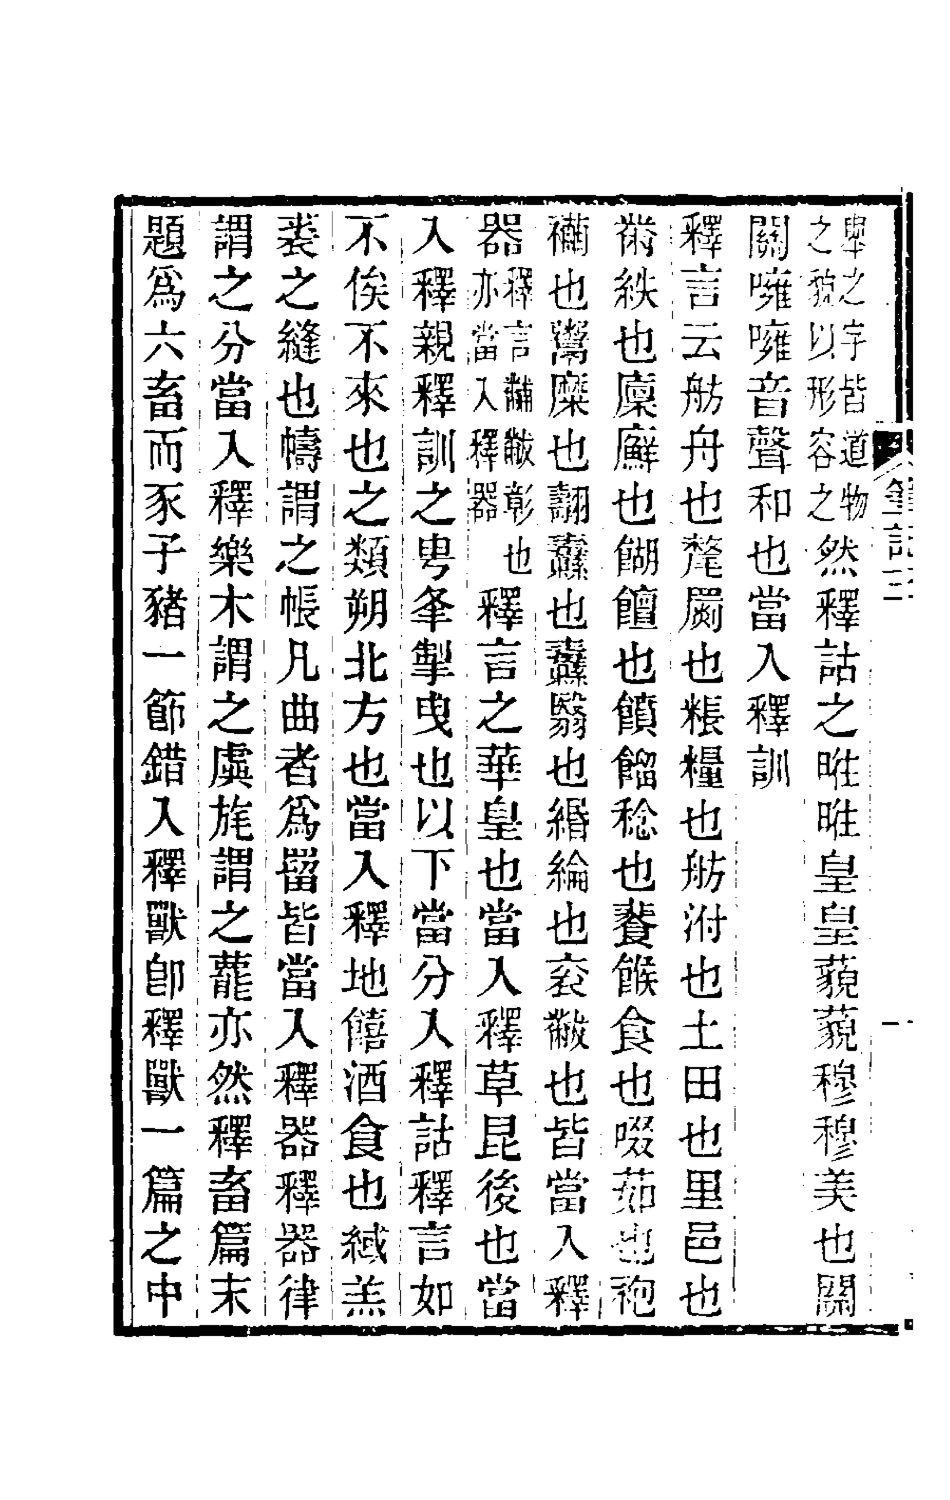 畢之字皆道物
之貌以形容之
然釋詁之暀暀皇皇藐藐穆穆美也關
關噰噰音聲和也當入釋訓
釋言云舫舟也氂罽也粻糧也舫泭也土田也里邑也
黹紩也廩廯也餬饘也饙餾稔也餥餱食也啜茹也袍
襺也鬻糜也翿纛也纛翳也緡綸也袞黻也皆當入釋
器
釋言黼黻彰也
亦當入釋器
釋言之華皇也當入釋草昆後也當
入釋親釋訓之甹夆掣曳也以下當分入釋詁釋言如
不俟不來也之類朔北方也當入釋地饎酒食也緎羔
裘之縫也幬謂之帳凡曲者爲罶皆當入釋器釋器律
謂之分當入釋樂木謂之虡旄謂之藣亦然釋畜篇末
題爲六畜而豕子豬一節錯入釋獸卽釋獸一篇之中
筆記二
一